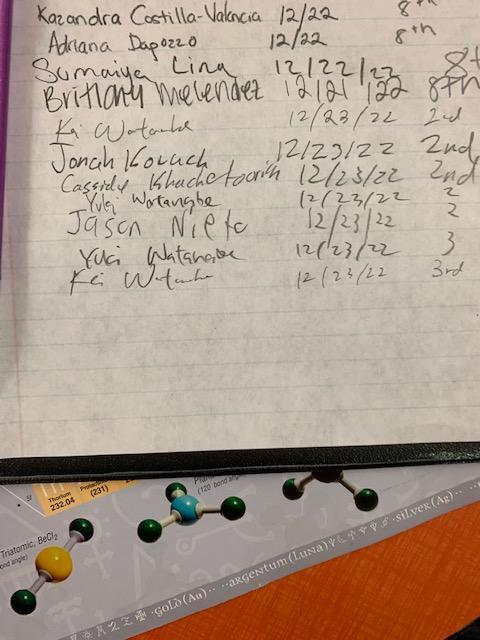 Kazandra Costilla-Valancia 12/22 8th
Adriana Dapozzo 12/22 8th
Sumaiya Lina 12/22/22 8th
Brittany Melendez 12/21/22 8th
Kei Watanabe 12/23/22 2nd
Jonah Kovach 12/23/22 2nd
Cassidy Khachetoorian 12/23/22 2nd
Yuki Watanabe 12/23/22 2
Jason Nieto 12/23/22 2
Yuki Watanabe 12/23/22 3
Kei Watanabe 12/23/22 3rd
Thorium
232.04
(231)
(120 bond angle)
Triatomic, BeCl2
bond angle)
GOLD (Au)
ARGENTUM (LUNA)
SILVER (Ag)